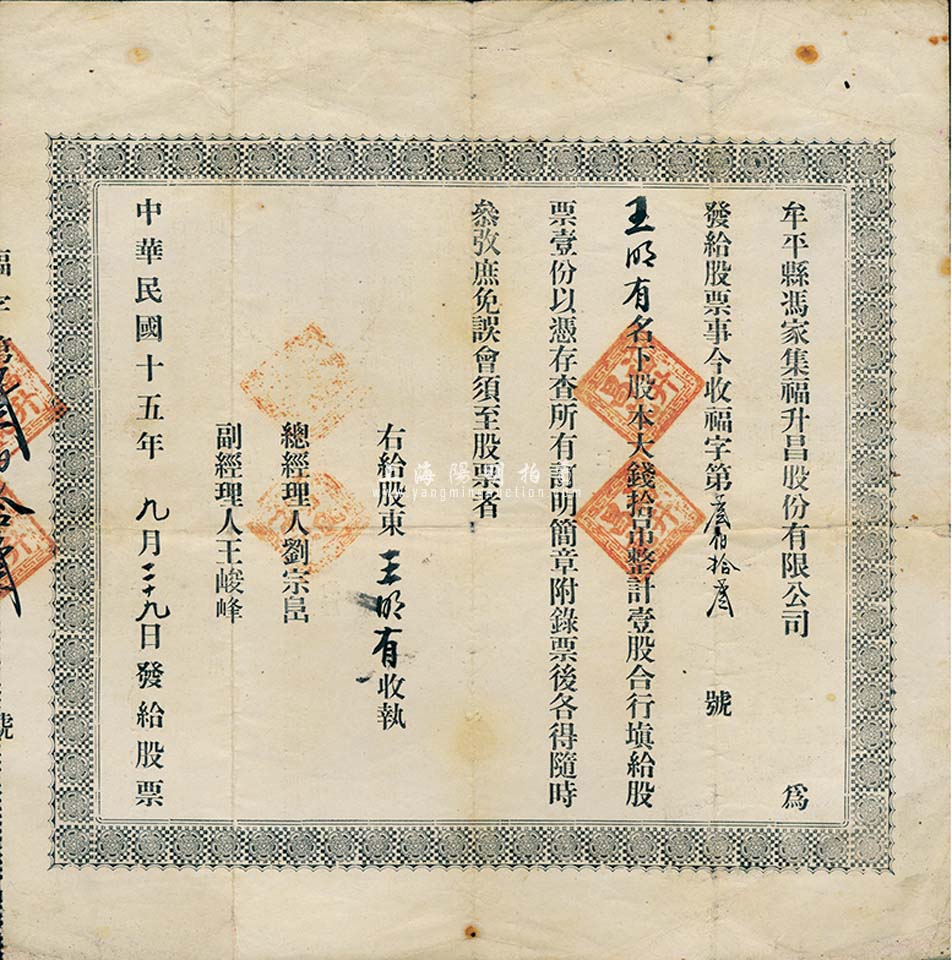 牟平縣馮家集福升昌股份有限公司 為
發給股票事今收福字第 號
王明有名下股本大錢拾吊整計壹股合行填給股
票壹份以憑存查所有訂明簡章附錄票後各得隨時
參攷庶免誤會須至股票者
右給股東王明有收執
總經理人劉宗嵒
副經理人王峻峰
中華民國十五年九月二十九日發給股票
福字第 號
www.yangmingauction.com